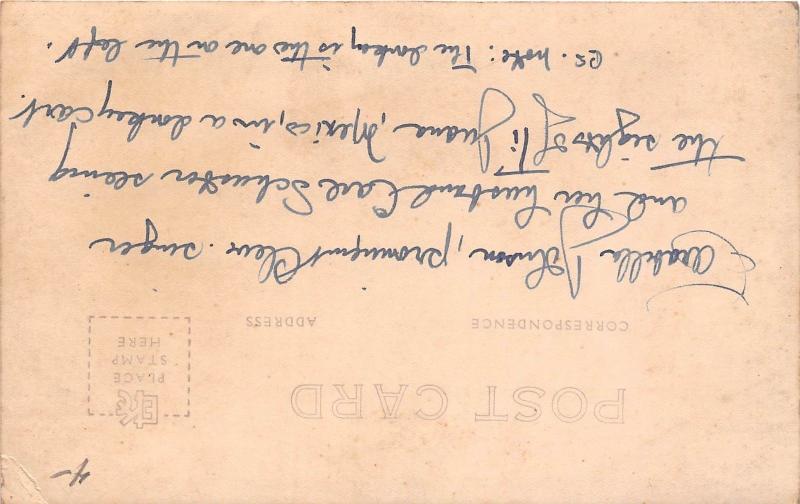 POST CARD
PLACE
STAMP
HERE
CORRESPONDENCE
ADDRESS
Arabella Johnson, prominent Clev. singer
and her husband Carl Schuster seeing
the sights of Ti Juana, Mexico, in a donkey cart.
P.S. note: The donkey is the one on the left.